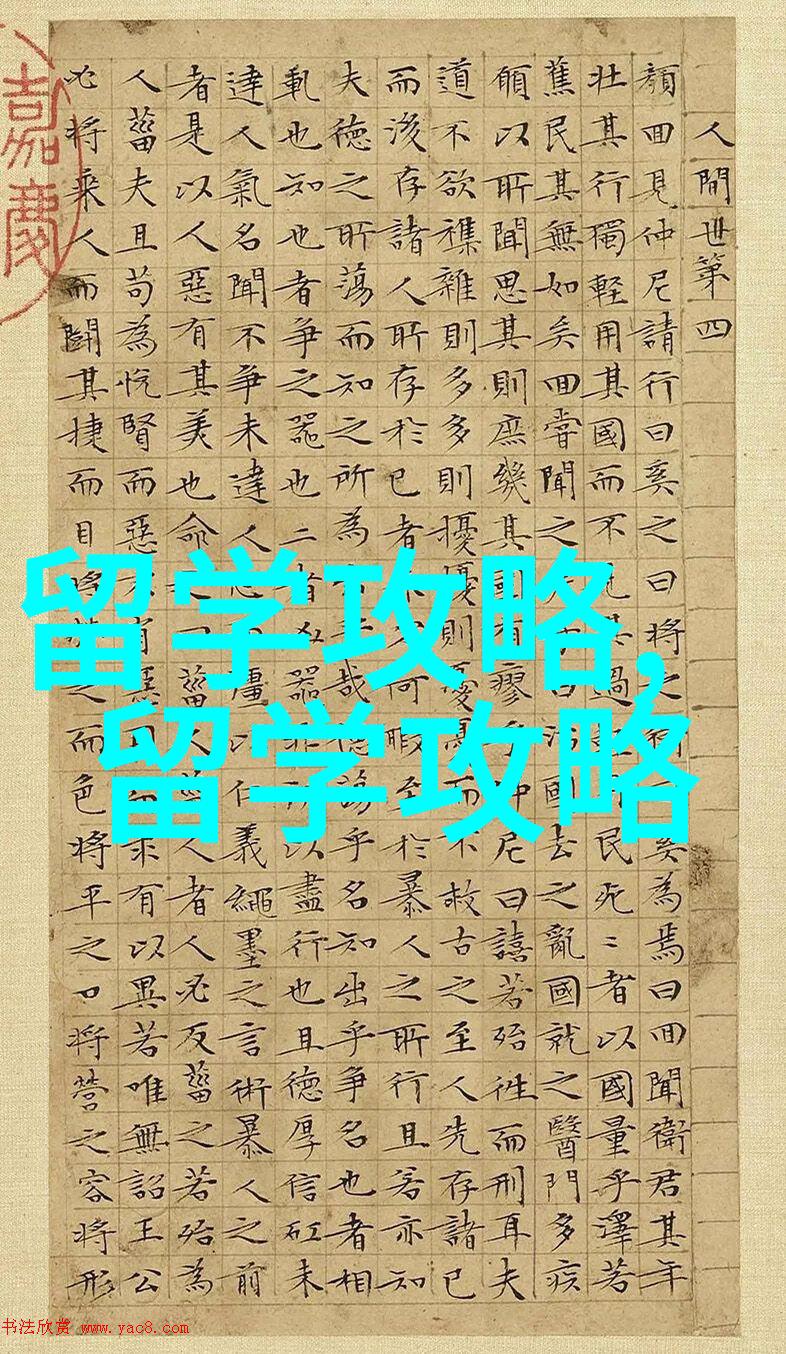 人間世第四
顏囬見仲尼請行曰奚之曰將之奚為焉曰囬聞衛君其年
壯其行獨輕用其國而不其過民死〻者以國量乎澤若
蕉民其無如矣囬嘗聞之治國去之亂國就之醫門多疾
願以所聞思其則庶幾其有瘳乎仲尼曰譆若殆往而刑耳夫
道不欲襍雜則多多則擾擾則憂憂而不救古之至人先存諸已
而後存諸人所存於已者何暇至於暴人之所行且若亦知
夫德之所蕩而知之所為乎哉德蕩乎名知出乎爭名也者相
軋也知也者爭之噐也二者凶器非所以盡行也且德厚信矼未
達人氣名聞不爭未達人彊以仁義繩墨之言術暴人之前
者是以人惡有其美也命菑人者人必反菑之若殆為
人菑夫且苟為悅賢而惡求有以異若唯無詔王公
必將乘人而鬭其捷而目將之而色將平之口將營之容將形
嘉慶
留学攻略,
留学攻略
书法欣赏 www.yac8.com